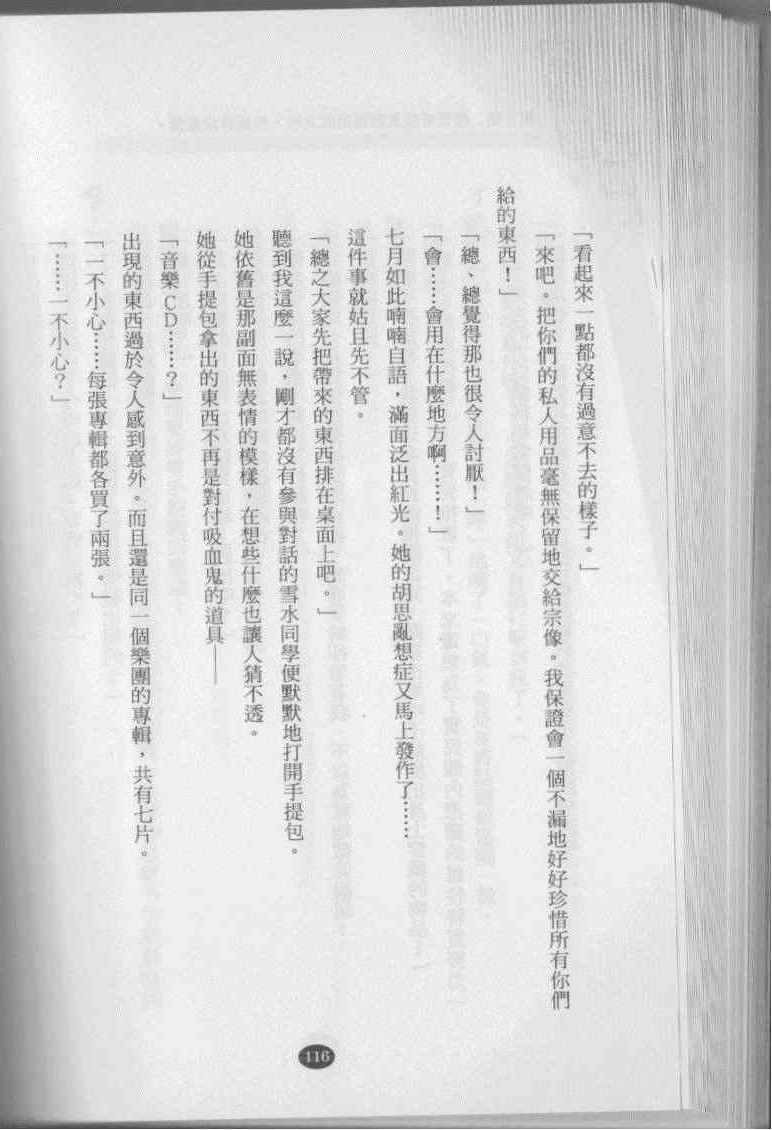 「看起來一點都沒有過意不去的樣子。」
「來吧。把你們的私人用品毫無保留地交給宗像。我保證會一個不漏地好好珍惜所有你們
給的東西！」
「總、總覺得那也很令人討厭！」
「會……會用在什麼地方啊……！」
七月如此喃喃自語，滿面泛出紅光。她的胡思亂想症又馬上發作了……
這件事就姑且先不管。
「總之大家先把帶來的東西排在桌面上吧。」
聽到我這麼一說，剛才都沒有參與對話的雪水同學便默默地打開手提包。
她依舊是那副面無表情的模樣，在想些什麼也讓人猜不透。
她從手提包拿出的東西不再是對付吸血鬼的道具——
「音樂CD……？」
出現的東西過於令人感到意外。而且還是同一個樂團的專輯，共有七片。
「一不小心……每張專輯都各買了兩張。」
「……一不小心？」
116